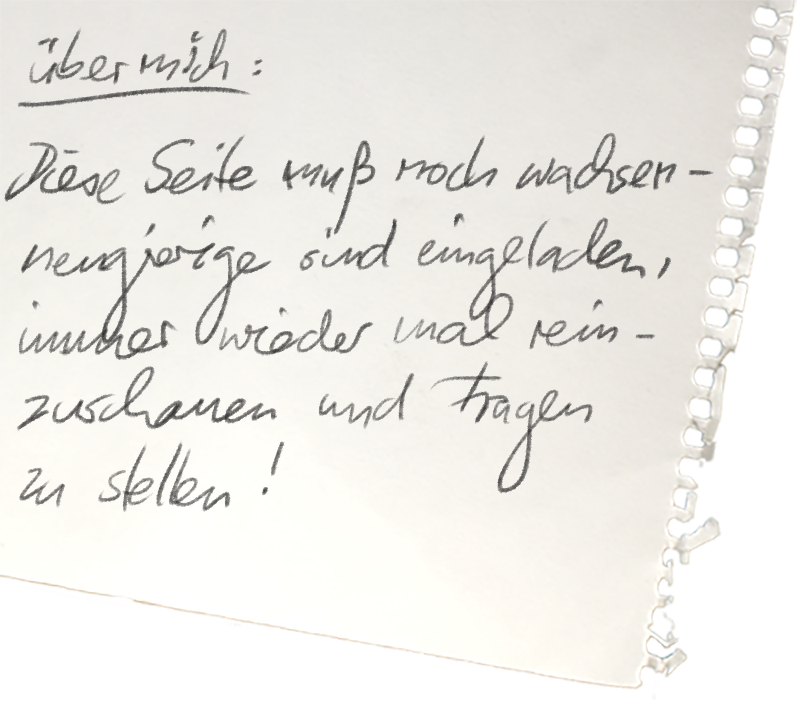 über mich:
Diese Seite muß noch wachsen -
neugierige sind eingeladen,
immer wieder mal rein-
zuschauen und Fragen
zu stellen!